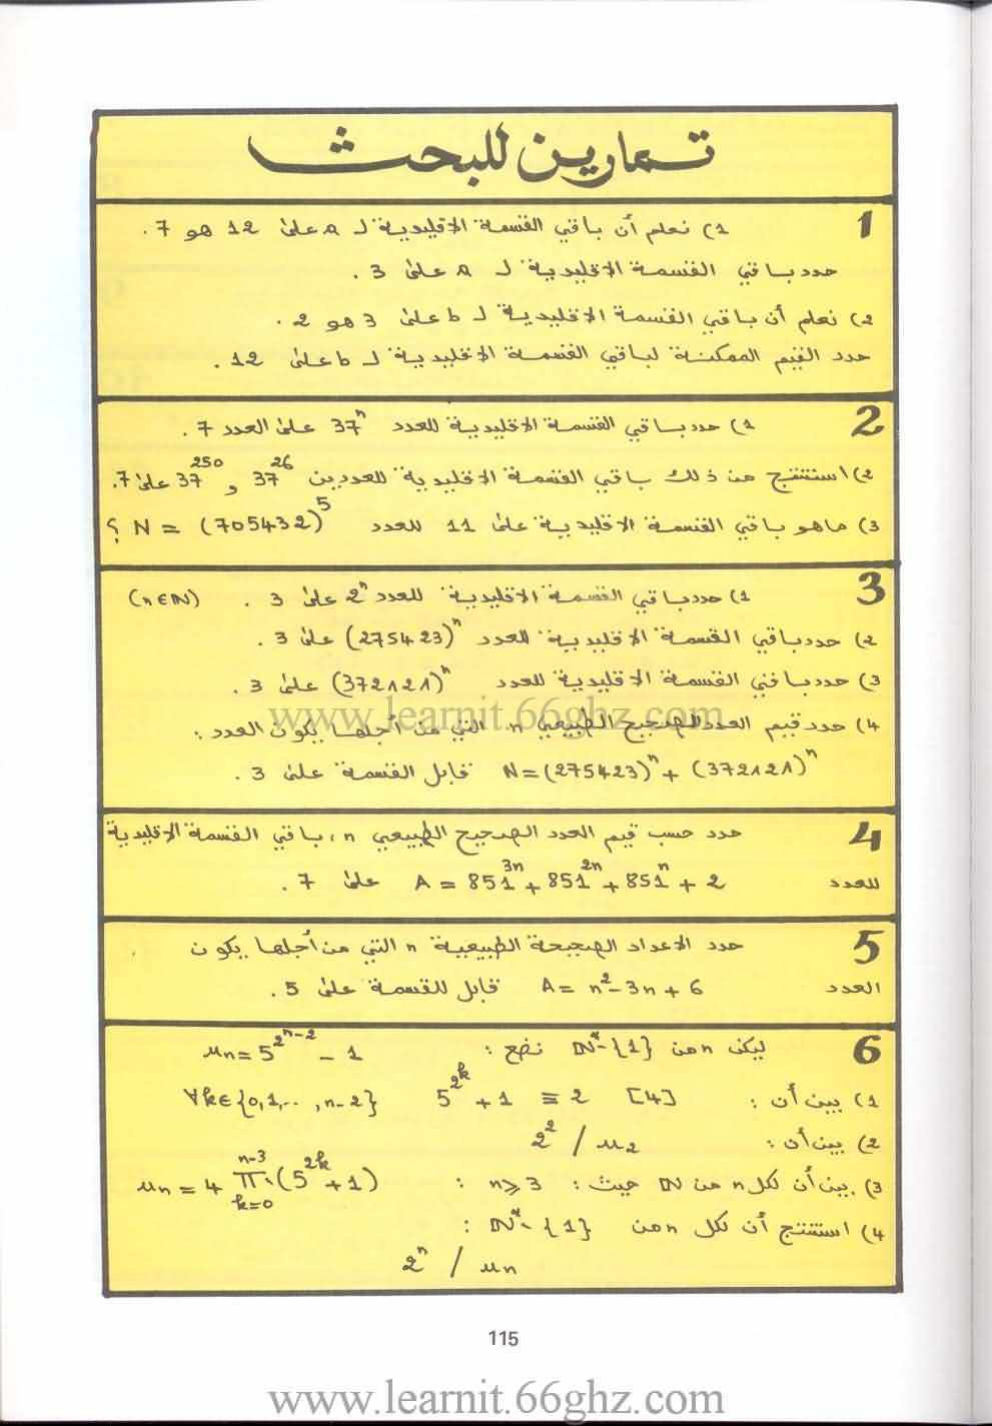 تمارين للبحث
1
1) نعلم أن باقي القسمة الاقليدية لـ a على 12 هو 7.
حدد باقي القسمة الاقليدية لـ a على 3.
2) نعلم أن باقي القسمة الاقليدية لـ b على 3 هو 2.
حدد القيم الممكنة لباقي القسمة الاقليدية لـ b على 12.
2
1) حدد باقي القسمة الاقليدية للعدد 37^n على العدد 7.
2) استنتج من ذلك باقي القسمة الاقليدية للعددين 37^26 و 37^250 على 7.
3) ما هو باقي القسمة الاقليدية على 11 للعدد N = (705432)^5 ؟
3
1) حدد باقي القسمة الاقليدية للعدد 2^n على 3. (n∈ℕ)
2) حدد باقي القسمة الاقليدية للعدد (275423)^n على 3.
3) حدد باقي القسمة الاقليدية للعدد (372121)^n على 3.
www.learnit.66ghz.com
4) حدد قيم العدد الصحيح الطبيعي n التي من أجلها يكون العدد:
N=(275423)^n + (372121)^n قابل القسمة على 3.
4
حدد حسب قيم العدد الصحيح الطبيعي n، باقي القسمة الاقليدية
للعدد A = 851^3n + 851^2n + 851^n + 2 على 7.
5
حدد الاعداد الصحيحة الطبيعية n التي من أجلها يكون
العدد A = n^2 - 3n + 6 قابل للقسمة على 5.
6
ليكن n من ℕ*-{1} نضع: un = 5^2^n-2 - 1
1) بين أن: 5^2^k + 1 ≡ 2 [4] ∀k∈{0,1,..,n-2}
2) بين أن: 2^2 / u2
3) بين أن لكل n من ℕ حيث: n⩾3 : un = 4 ∏_{k=0}^{n-3} (5^2^k + 1)
4) استنتج أن لكل n من ℕ*-{1} :
2^n / un
115
www.learnit.66ghz.com